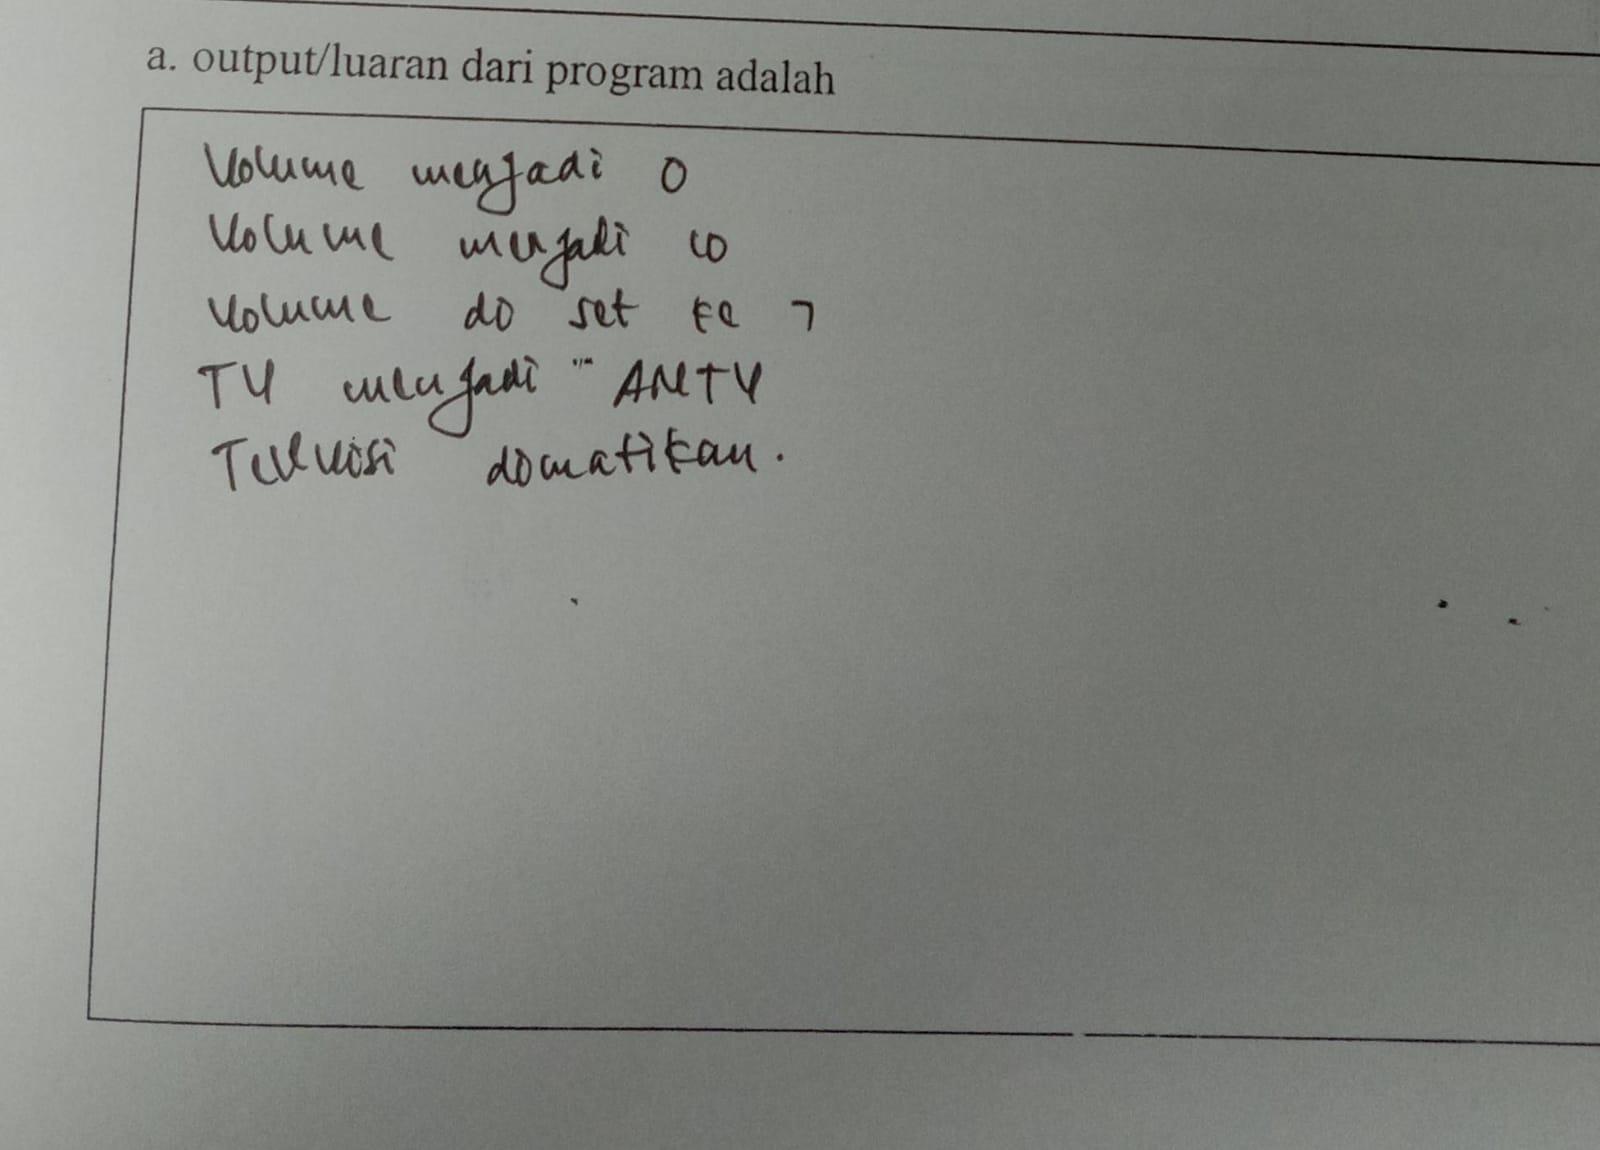 a. output/luaran dari program adalah
Volume menjadi 0
Volume menjadi 10
Volume di set ke 7
TV menjadi "" ANTV
Televisi dimatikan.